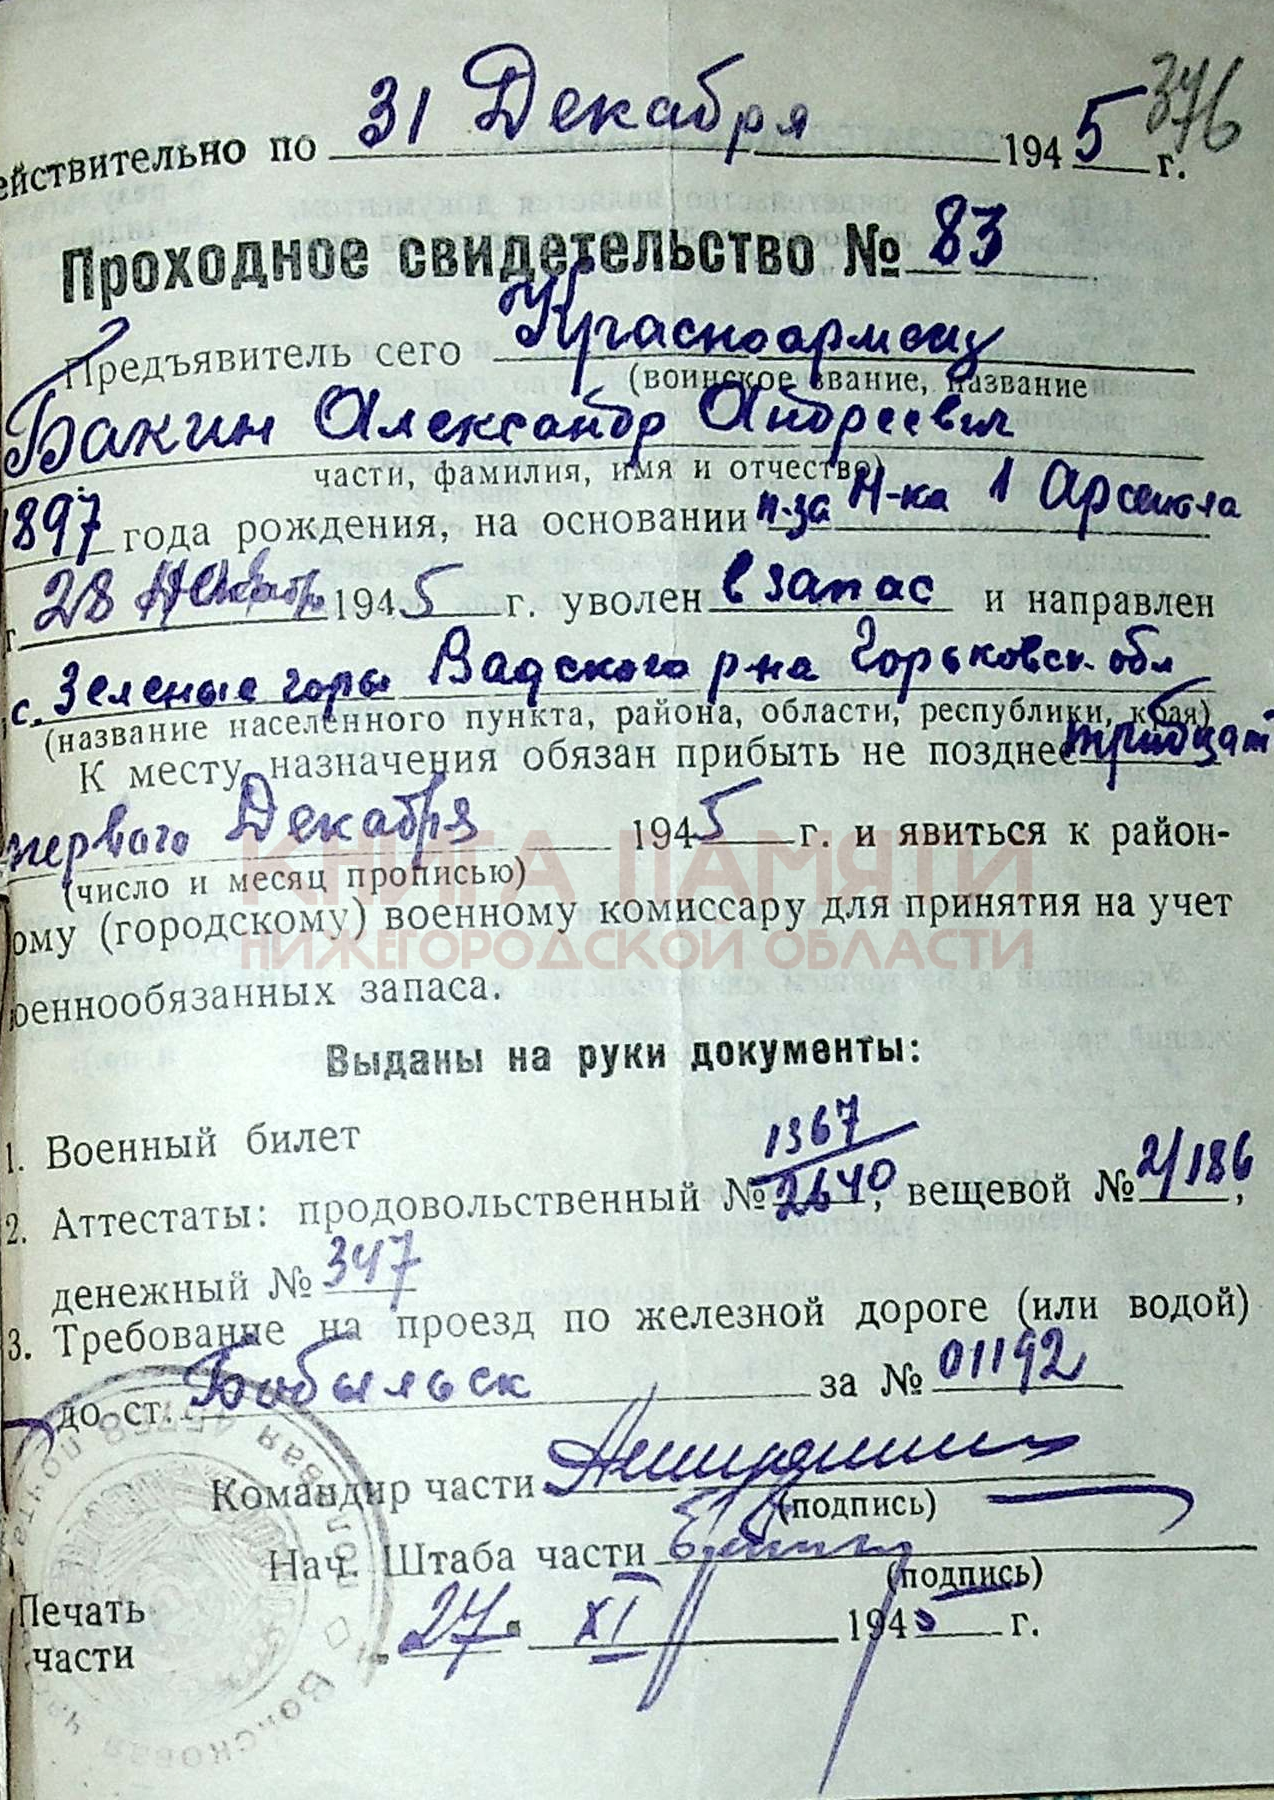 376
ействительно по 31 Декабря 1945 г.
Проходное свидетельство № 83
Предъявитель сего Красноармеец
(воинское звание, название
Бакин Александр Андреевич
части, фамилия, имя и отчество)
1897 года рождения, на основании п-за Н-ка 1 Арсенала
28 1945 г. уволен в запас и направлен
с. Зеленые горы Вадского р-на Горьковск. обл
(название населенного пункта, района, области, республики, края)
К месту назначения обязан прибыть не позднее тридцат
первого Декабря 1945 г. и явиться к район-
(число и месяц прописью)
ому (городскому) военному комиссару для принятия на учет
оеннообязанных запаса.
КНИГА ПАМЯТИ
НИЖЕГОРОДСКОЙ ОБЛАСТИ
Выданы на руки документы:
1. Военный билет
2. Аттестаты: продовольственный № 1367/2640, вещевой № 2/186,
денежный № 347
3. Требование на проезд по железной дороге (или водой)
до ст. Бобыльск за № 01192
Командир части
(подпись)
Нач. Штаба части
(подпись)
Печать
части
27 XI 1945 г.